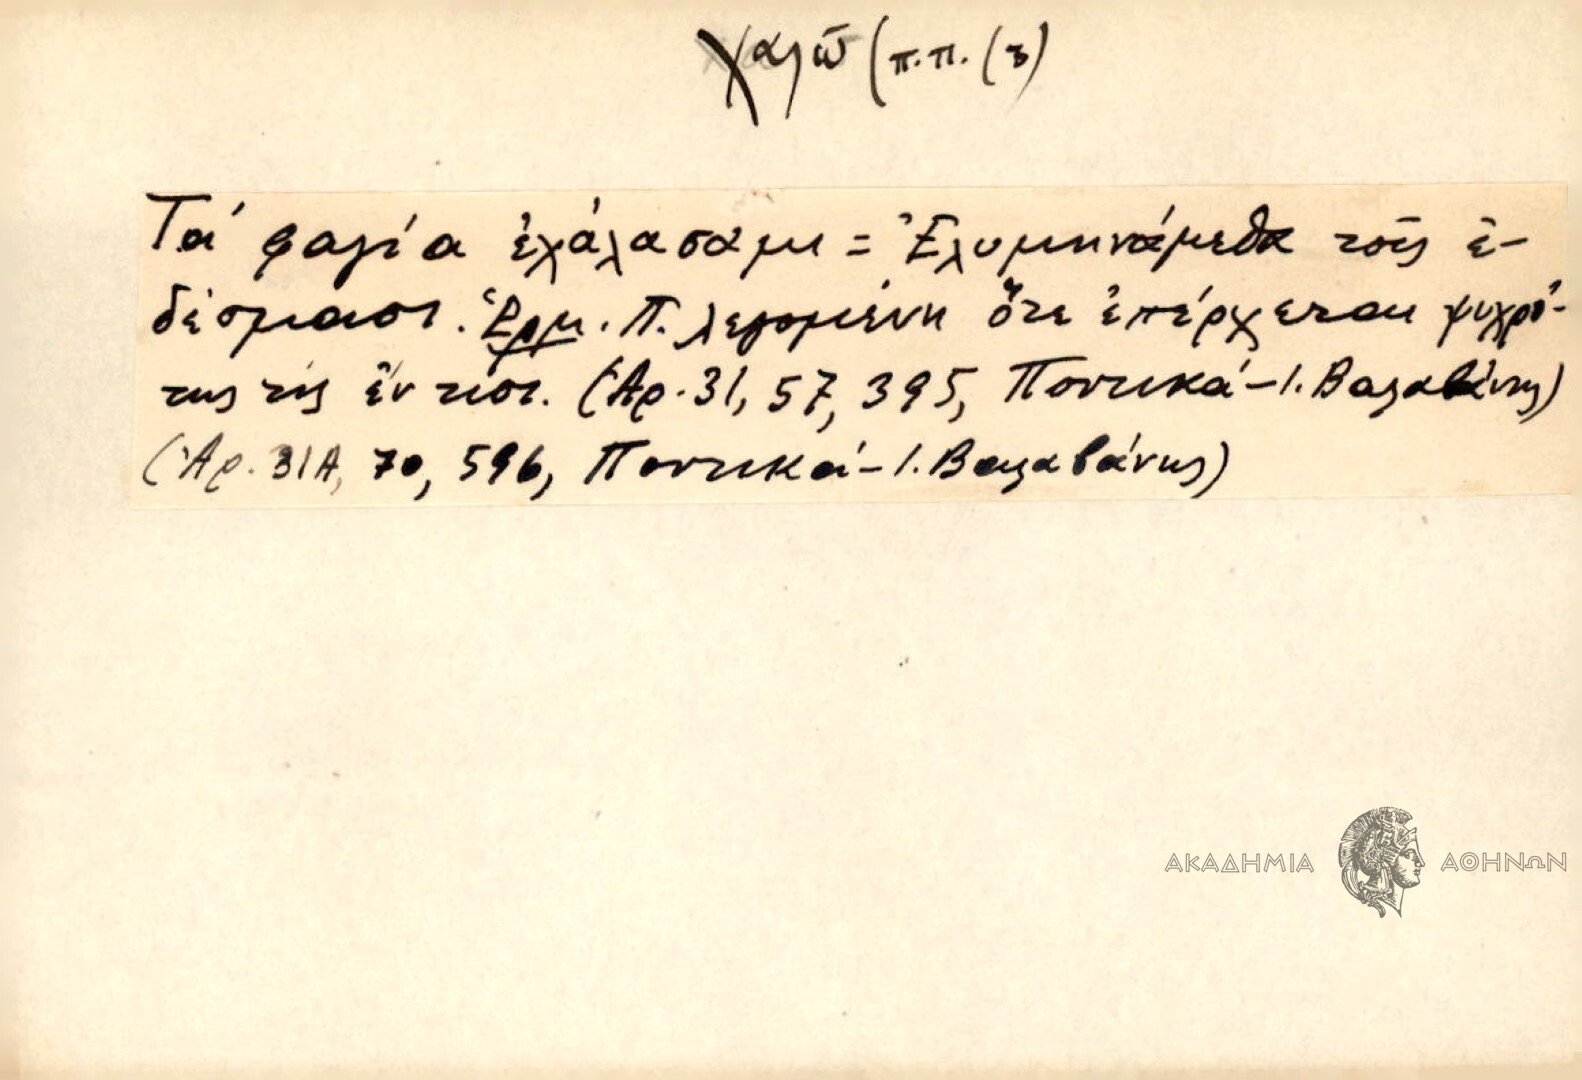 Χαλῶ (π.π. (3)
Τά φαγία ἐχάλασαμε = Ἐλυμηνάμεθα τοῖς ἐ-
δέσμασι. Ἑρμ. Π. λεγομένη ὅτε ἐπέρχεται ψυχρό-
της τις ἔν τισι. (Ἀρ. 31, 57, 395, Ποντικά - Ι. Βαλαβάνης)
(Ἀρ. 31Α, 70, 596, Ποντικά - Ι. Βαλαβάνης)
ΑΚΑΔΗΜΙΑ ΑΘΗΝΩΝ